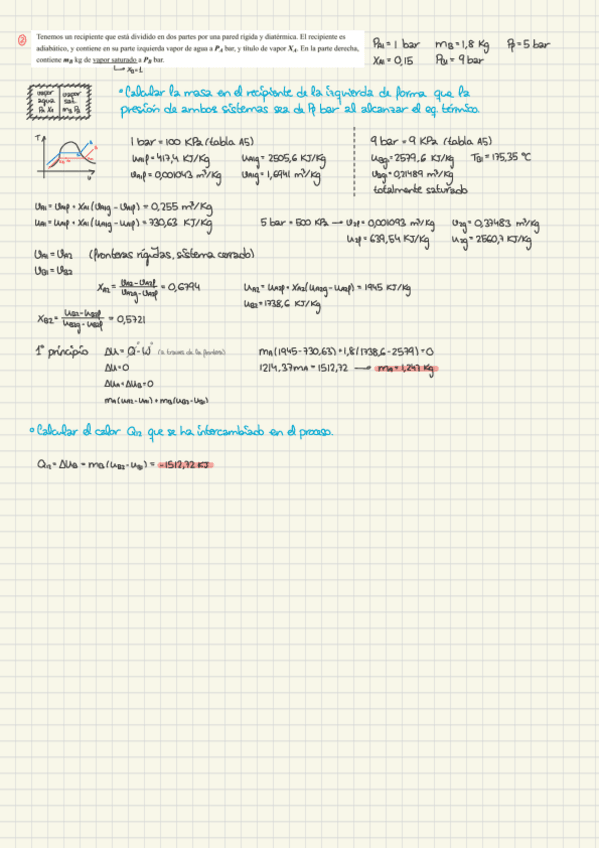 ② Tenemos un recipiente que está dividido en dos partes por una pared rígida y diatérmica. El recipiente es
adiabático, y contiene en su parte izquierda vapor de agua a P_A bar, y título de vapor X_A. En la parte derecha,
contiene m_B kg de vapor saturado a P_B bar.
↳ x_B=1
P_A1 = 1 bar m_B = 1,8 Kg P_f = 5 bar
X_A1 = 0,15 P_B1 = 9 bar
vapor agua P_A X_A
vapor sat. m_B P_B
• Calcular la masa en el recipiente de la izquierda de forma que la
presión de ambos sistemas sea de P_f bar al alcanzar el eq. térmico.
T
1 bar = 100 KPa (tabla A5)
u_A1f = 417,4 KJ/Kg u_A1g = 2505,6 KJ/Kg
v_A1f = 0,001043 m³/Kg v_A1g = 1,6941 m³/Kg
9 bar = 9 KPa (tabla A5)
u_Bg = 2579,6 KJ/Kg T_B1 = 175,35 °C
v_Bg = 0,21489 m³/Kg
totalmente saturado
v_A1 = v_A1f + x_A1 (v_A1g - v_A1f) = 0,255 m³/Kg
u_A1 = u_A1f + x_A1 (u_A1g - u_A1f) = 730,63 KJ/Kg
5 bar = 500 KPa → v_2f = 0,001093 m³/Kg v_2g = 0,37483 m³/Kg
u_2f = 639,54 KJ/Kg u_2g = 2560,7 KJ/Kg
v_A1 = v_A2 (fronteras rígidas, sistema cerrado)
v_B1 = v_B2
x_A2 = (v_A2 - v_2f)/(v_A2g - v_A2f) = 0,6794
u_A2 = u_A2f + x_A2 (u_A2g - u_A2f) = 1945 KJ/Kg
u_B2 = 1738,6 KJ/Kg
x_B2 = (v_B2 - v_B2f)/(v_B2g - v_B2f) = 0,5721
1º principio ΔU = Q - W (a través de la frontera)
ΔU = 0
ΔU_A + ΔU_B = 0
m_A (u_A2 - u_A1) + m_B (u_B2 - u_B1)
m_A (1945 - 730,63) + 1,8 (1738,6 - 2579) = 0
1214,37 m_A = 1512,72 → m_A = 1,247 Kg
• Calcular el calor Q_12 que se ha intercambiado en el proceso.
Q_12 = ΔU_B = m_B (u_B2 - u_B1) = -1512,72 KJ